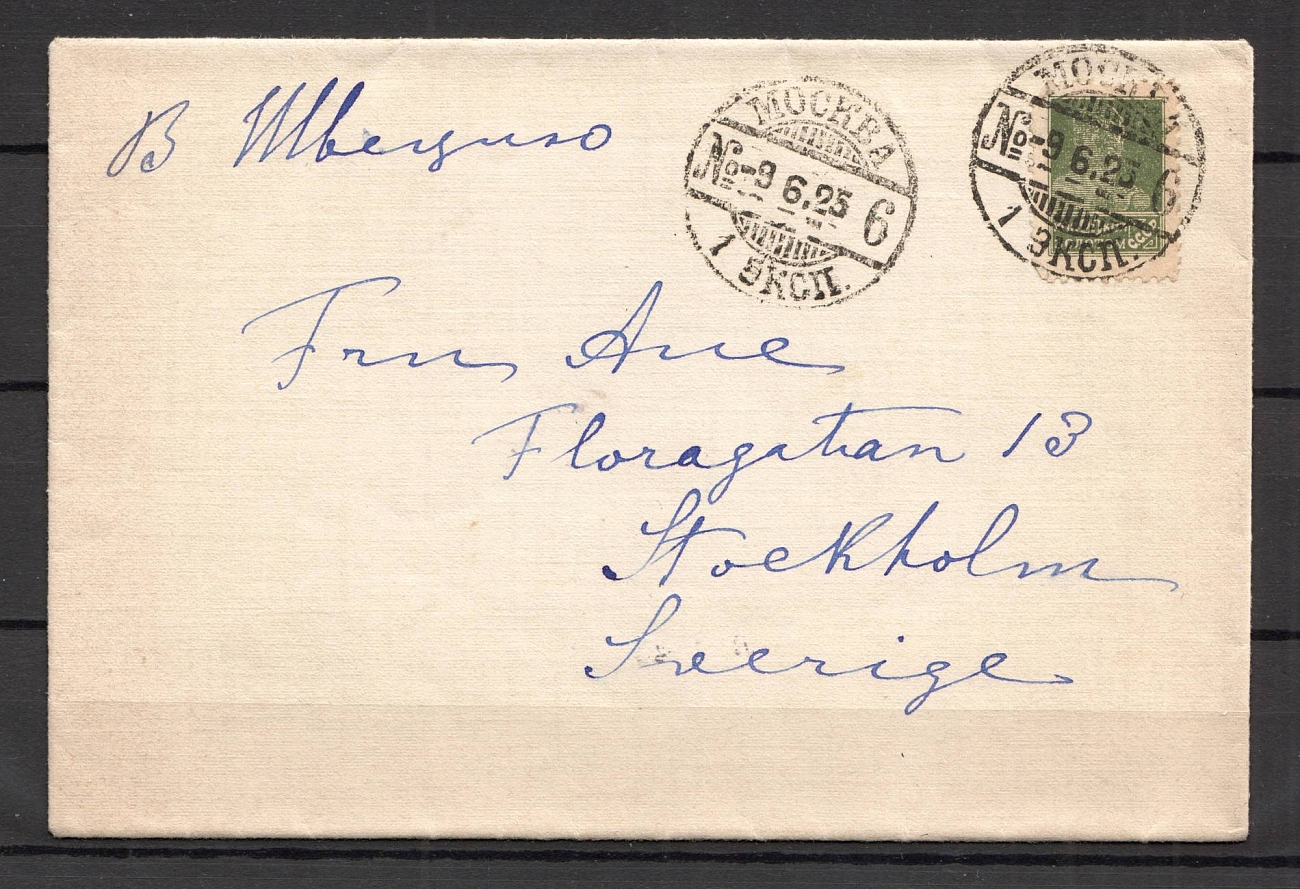 В Швецию
МОСКВА
№ -9 6.25 6
1 ЭКСП.
МОСКВА
№ -9 6.25 6
1 ЭКСП.
СССР
Fru Aue
Floragatan 13
Stockholm
Sverige